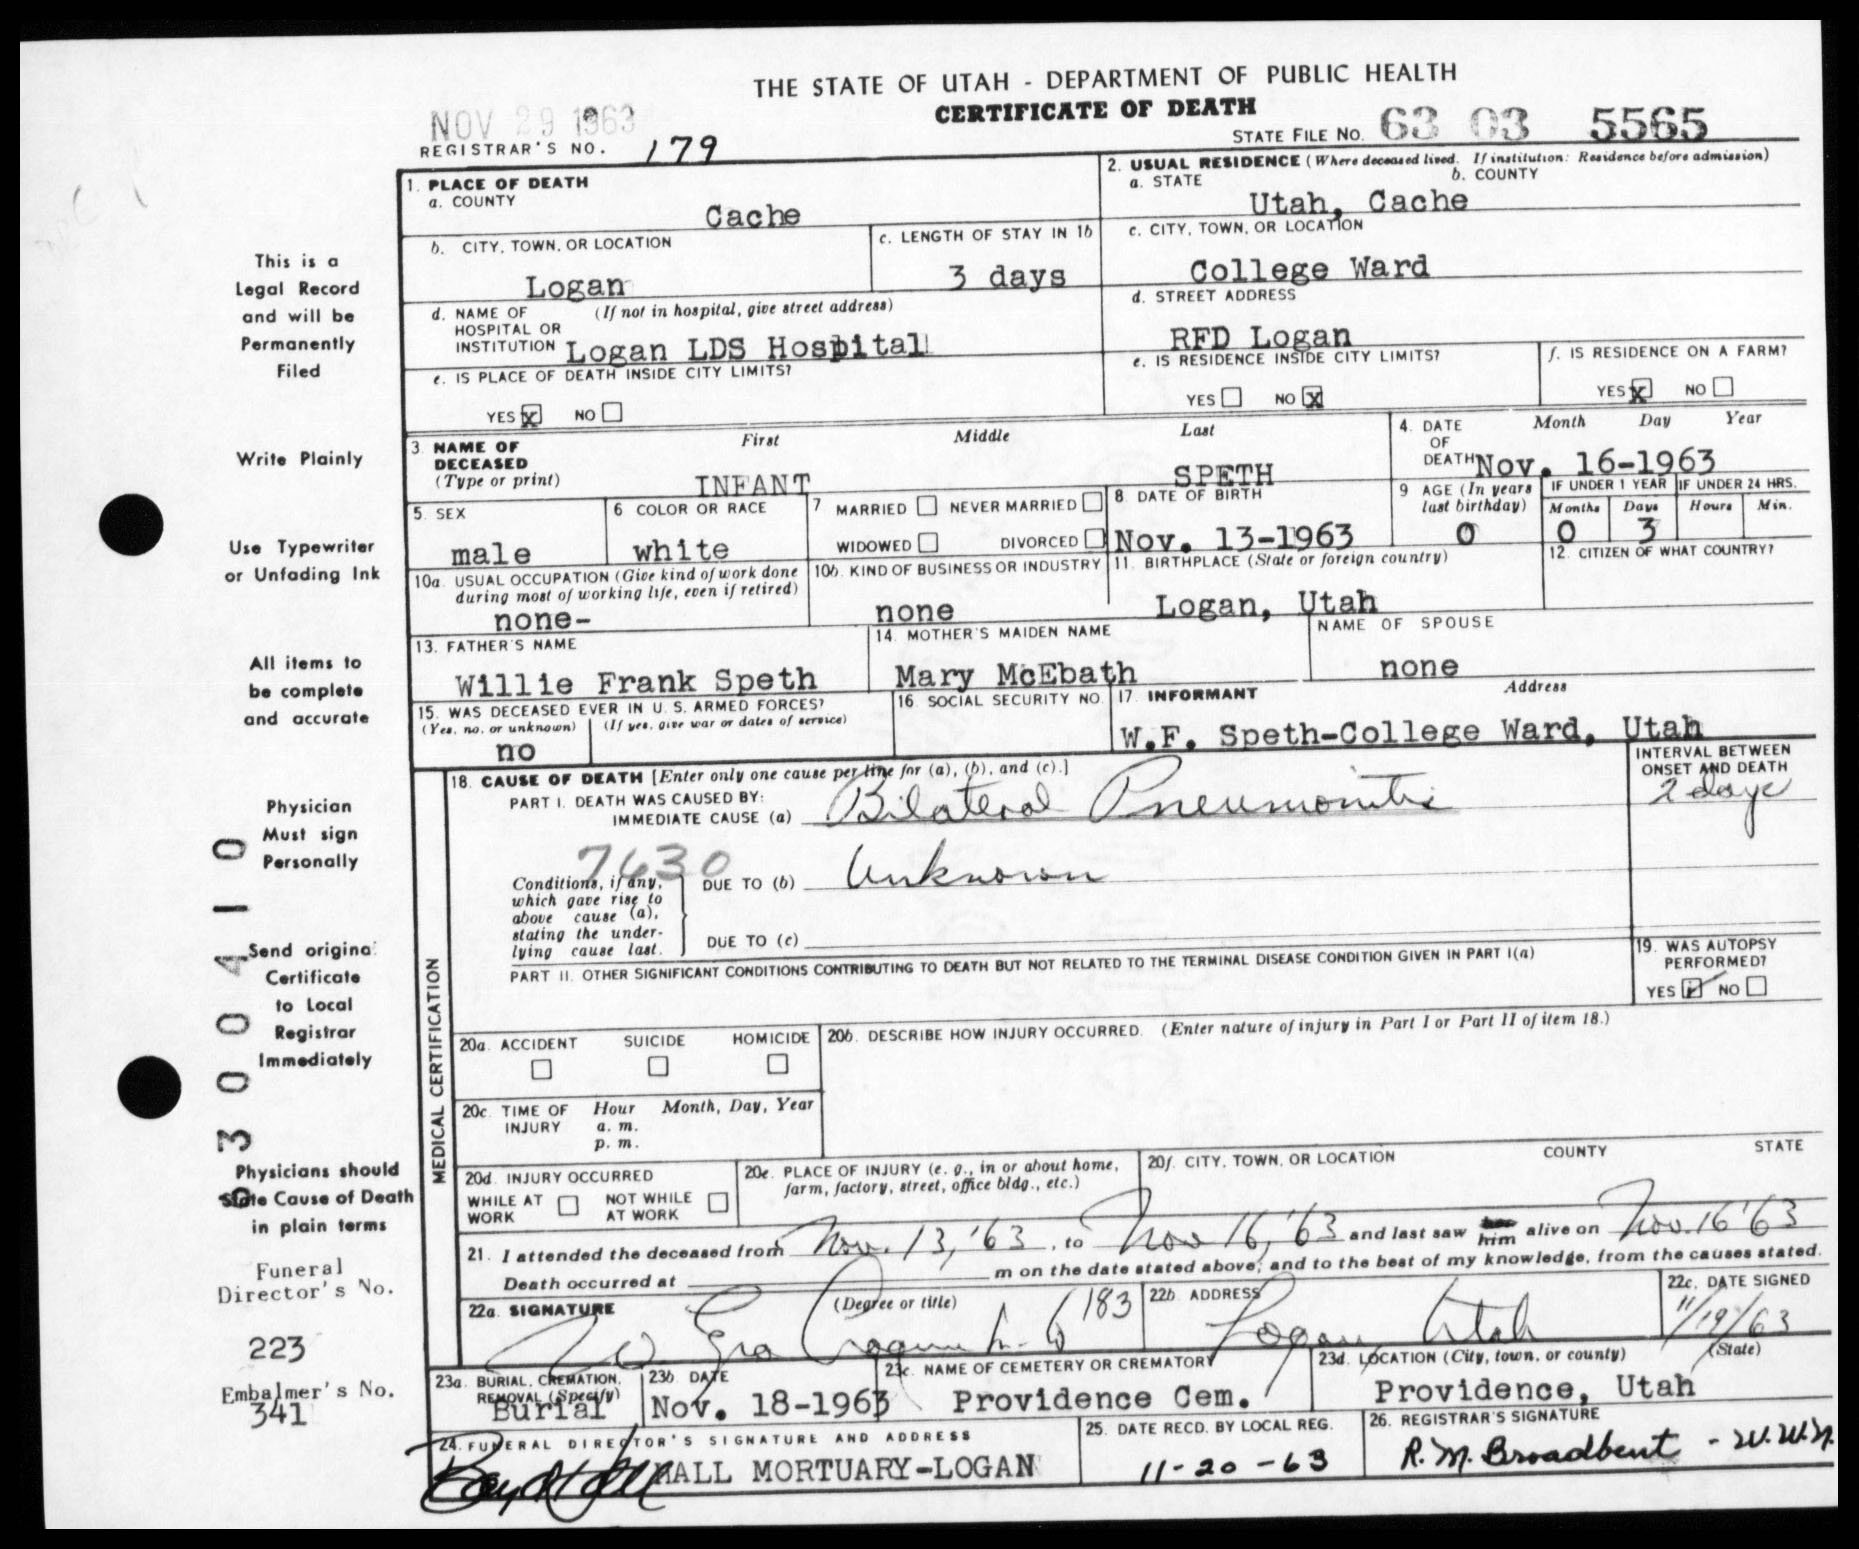 THE STATE OF UTAH - DEPARTMENT OF PUBLIC HEALTH
CERTIFICATE OF DEATH
NOV 29 1963
REGISTRAR'S NO. 179
STATE FILE NO. 63 03 5565
1. PLACE OF DEATH
a. COUNTY
Cache
2. USUAL RESIDENCE (Where deceased lived. If institution: Residence before admission)
a. STATE b. COUNTY
Utah, Cache
b. CITY, TOWN, OR LOCATION
Logan
c. LENGTH OF STAY IN 1b
3 days
c. CITY, TOWN, OR LOCATION
College Ward
d. NAME OF (If not in hospital, give street address)
HOSPITAL OR
INSTITUTION Logan LDS Hospital
d. STREET ADDRESS
RFD Logan
e. IS PLACE OF DEATH INSIDE CITY LIMITS?
YES X NO
e. IS RESIDENCE INSIDE CITY LIMITS?
YES NO X
f. IS RESIDENCE ON A FARM?
YES X NO
3. NAME OF DECEASED (Type or print)
First Middle Last
INFANT SPETH
4. DATE OF DEATH Month Day Year
Nov. 16-1963
5. SEX
male
6 COLOR OR RACE
white
7 MARRIED NEVER MARRIED
WIDOWED DIVORCED
8. DATE OF BIRTH
Nov. 13-1963
9 AGE (In years last birthday)
0
IF UNDER 1 YEAR IF UNDER 24 HRS.
Months Days Hours Min.
0 3
10a. USUAL OCCUPATION (Give kind of work done during most of working life, even if retired)
none-
10b. KIND OF BUSINESS OR INDUSTRY
none
11. BIRTHPLACE (State or foreign country)
Logan, Utah
12. CITIZEN OF WHAT COUNTRY?
13. FATHER'S NAME
Willie Frank Speth
14. MOTHER'S MAIDEN NAME
Mary McEbath
NAME OF SPOUSE
none
15. WAS DECEASED EVER IN U. S. ARMED FORCES?
(Yes, no, or unknown) (If yes, give war or dates of service)
no
16. SOCIAL SECURITY NO.
17. INFORMANT Address
W.F. Speth-College Ward, Utah
MEDICAL CERTIFICATION
18. CAUSE OF DEATH [Enter only one cause per line for (a), (b), and (c).]
PART I. DEATH WAS CAUSED BY:
IMMEDIATE CAUSE (a) Bilateral Pneumonitis
INTERVAL BETWEEN
ONSET AND DEATH
2 days
7630
Conditions, if any,
which gave rise to
above cause (a),
stating the under-
lying cause last.
DUE TO (b) Unknown
DUE TO (c)
PART II. OTHER SIGNIFICANT CONDITIONS CONTRIBUTING TO DEATH BUT NOT RELATED TO THE TERMINAL DISEASE CONDITION GIVEN IN PART I(a)
19. WAS AUTOPSY
PERFORMED?
YES NO
20a. ACCIDENT SUICIDE HOMICIDE
20b. DESCRIBE HOW INJURY OCCURRED. (Enter nature of injury in Part I or Part II of item 18.)
20c. TIME OF INJURY Hour Month, Day, Year
a. m.
p. m.
20d. INJURY OCCURRED
WHILE AT WORK NOT WHILE AT WORK
20e. PLACE OF INJURY (e. g., in or about home, farm, factory, street, office bldg., etc.)
20f. CITY, TOWN, OR LOCATION COUNTY STATE
21. I attended the deceased from Nov. 13, '63, to Nov 16, '63 and last saw him alive on Nov. 16 '63
Death occurred at m on the date stated above; and to the best of my knowledge, from the causes stated.
22a. SIGNATURE (Degree or title) 183
22b. ADDRESS
Logan Utah
22c. DATE SIGNED
11/19/63
23a. BURIAL, CREMATION, REMOVAL (Specify)
Burial
23b. DATE
Nov. 18-1963
23c. NAME OF CEMETERY OR CREMATORY
Providence Cem.
23d. LOCATION (City, town, or county) (State)
Providence, Utah
24. FUNERAL DIRECTOR'S SIGNATURE AND ADDRESS
HALL MORTUARY-LOGAN
25. DATE RECD. BY LOCAL REG.
11-20-63
26. REGISTRAR'S SIGNATURE
R.M. Broadbent - W.W.N.
This is a
Legal Record
and will be
Permanently
Filed
Write Plainly
Use Typewriter
or Unfading Ink
All items to
be complete
and accurate
Physician
Must sign
Personally
Send original
Certificate
to Local
Registrar
Immediately
Physicians should
State Cause of Death
in plain terms
Funeral
Director's No.
223
Embalmer's No.
341